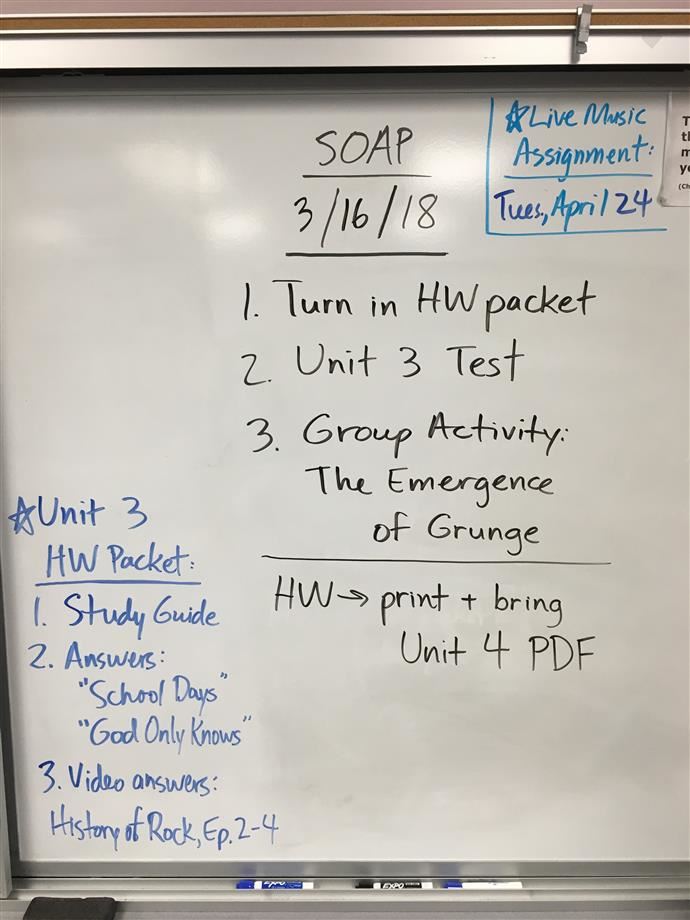 SOAP
3/16/18
1. Turn in HW packet
2. Unit 3 Test
3. Group Activity:
The Emergence
of Grunge
HW → print + bring
Unit 4 PDF
☆Live Music
Assignment:
Tues., April 24
☆Unit 3
HW Packet:
1. Study Guide
2. Answers:
"School Days"
"God Only Knows"
3. Video answers:
History of Rock, Ep. 2-4
EXPO
EXPO